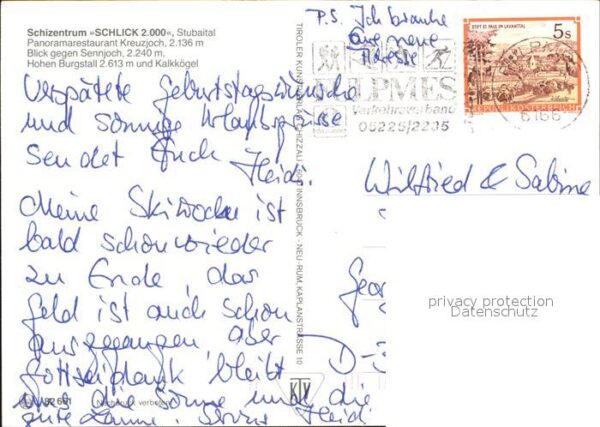 Schizentrum »SCHLICK 2.000«, Stubaital
Panoramarestaurant Kreuzjoch, 2.136 m
Blick gegen Sennjoch, 2.240 m.
Hohen Burgstall 2.613 m und Kalkkögel
P.S. Ich brauche
Eure neue
Adresse
Verspätete Geburtstagswünsche
und sonnige Urlaubsgrüsse
sendet Euch Heidi.
Meine Skiwoche ist
bald schon wieder
zu Ende, das
Geld ist auch schon
ausgegangen, aber
Gottseidank bleibt
uns die Sonne und die
gute Laune. Servus Heidi
92691
Nachdruck verboten
KTV
TIROLER KUNSTVERLAG CHIZZALI, 6020 INNSBRUCK - NEU-RUM, KAPLANSTRASSE 10
STIFT ST. PAUL IM LAVANTTAL
5s
REPUBLIK ÖSTERREICH
FULPMES
Verkehrsverband
05225/2235
6166
Wilfried & Sabine
Geor
D-3
privacy protection
Datenschutz